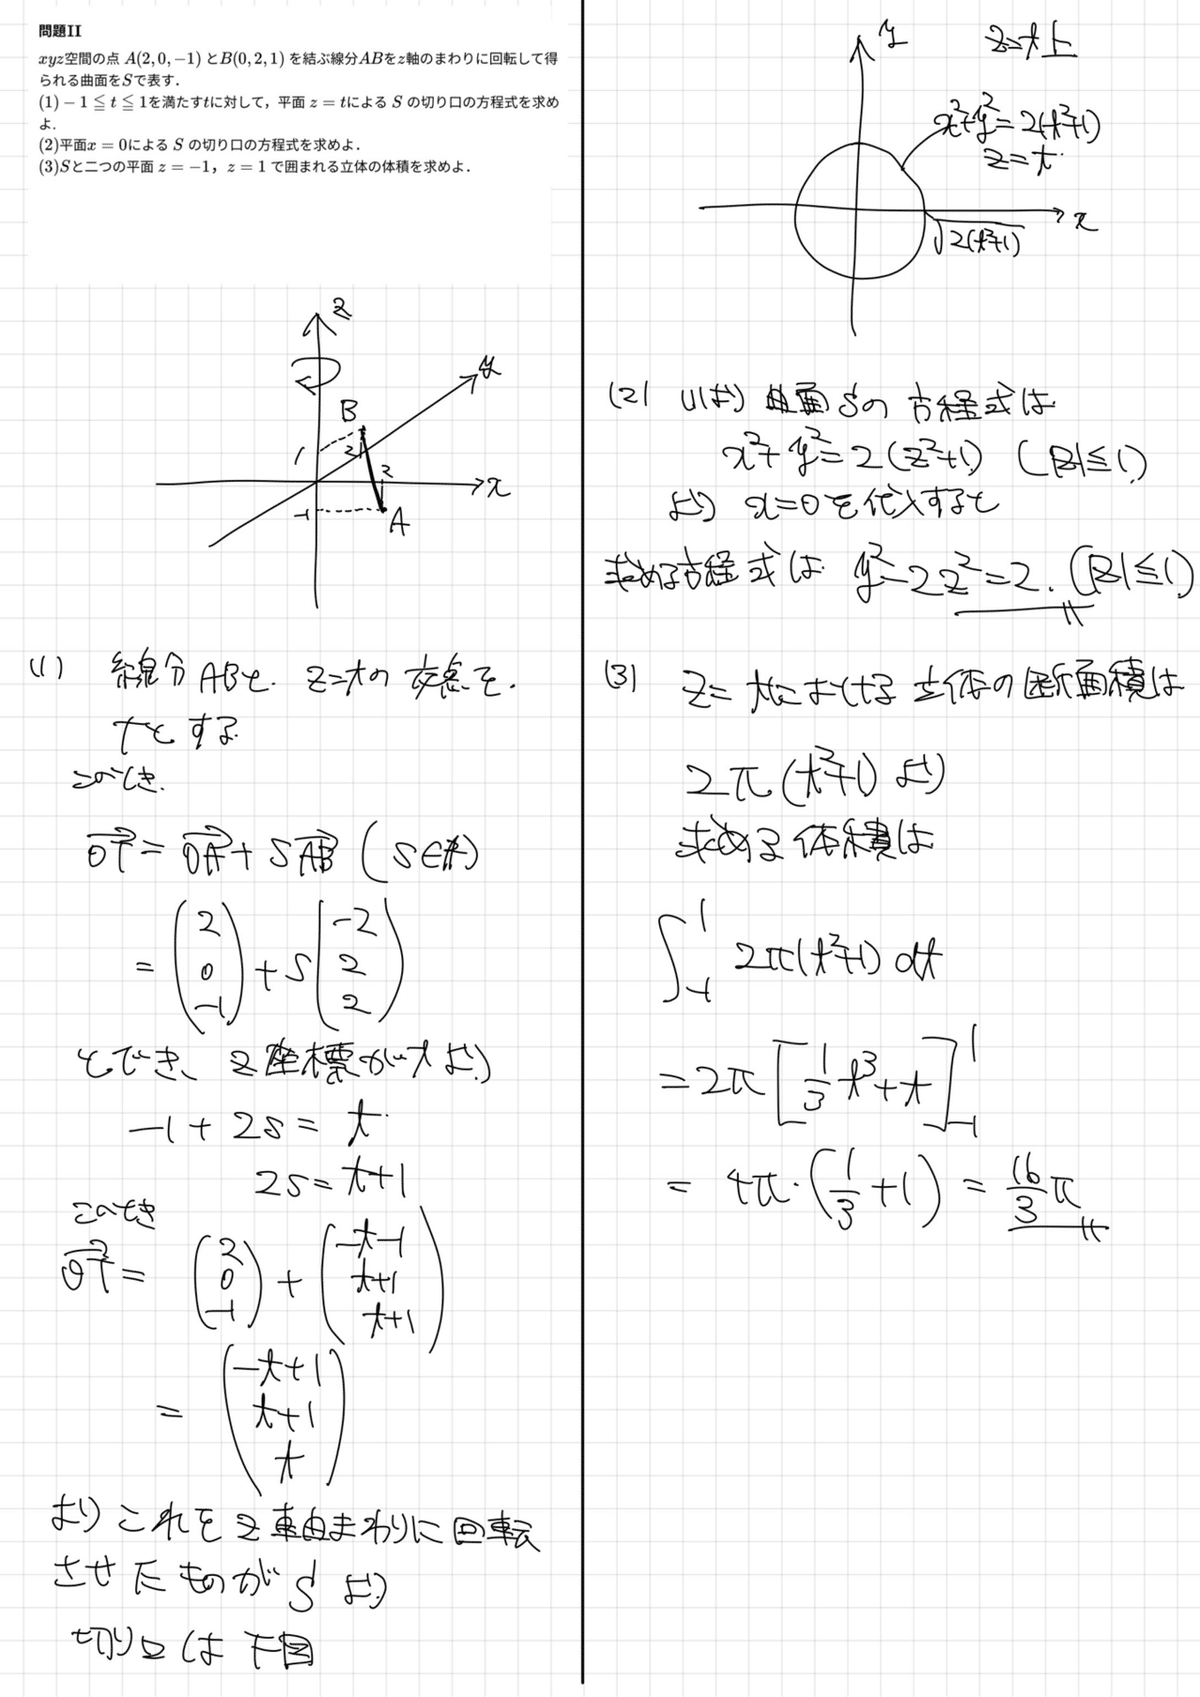 問題II
xyz空間の点 A(2,0,−1) とB(0,2,1) を結ぶ線分ABをz軸のまわりに回転して得
られる曲面をSで表す．
(1) − 1 ≦ t ≦ 1を満たすtに対して，平面 z = tによる S の切り口の方程式を求め
よ．
(2)平面x = 0による S の切り口の方程式を求めよ．
(3)Sと二つの平面 z = −1，z = 1 で囲まれる立体の体積を求めよ．
z
y
B
1
2
2
x
-1
A
(1) 線分ABと、z=tの交点を、
Tとする
このとき、
\overrightarrow{OT} = \overrightarrow{OA} + s\overrightarrow{AB} (s∈R)
= (2, 0, -1) + s(-2, 2, 2)
とでき、z座標がtより
-1+2s = t
2s = t+1
このとき
\overrightarrow{OT} = (2, 0, -1) + (-t-1, t+1, t+1)
= (-t+1, t+1, t)
よりこれをz軸まわりに回転
させたものがSより
切り口は下図
y
z=t上
x²+y²=2(t²+1)
z=t
x
√2(t²+1)
(2) (1)より 曲面Sの方程式は
x²+y²=2(z²+1) (|z|≦1)
より x=0を代入すると
求める方程式は y²-2z²=2. (|z|≦1)
(3) z=tにおける立体の断面積は
2π(t²+1)より
求める体積は
∫_{-1}^{1} 2π(t²+1)dt
=2π[1/3 t³+t]_{-1}^{1}
= 4π·(1/3+1) = 16/3 π